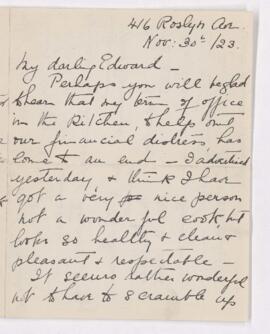 416 Roslyn Ave.
Nov: 30th/23.
My darling Edward –
Perhaps you will be glad
to hear that my term of office
in the Kitchen, to help out
our financial distress, has
come to an end – I advertised
yesterday & think I have
got a very nice person
not a wonderful cook, but
looks so healthy & clean &
pleasant & respectable –
It seems rather wonderful
not to have to scramble up